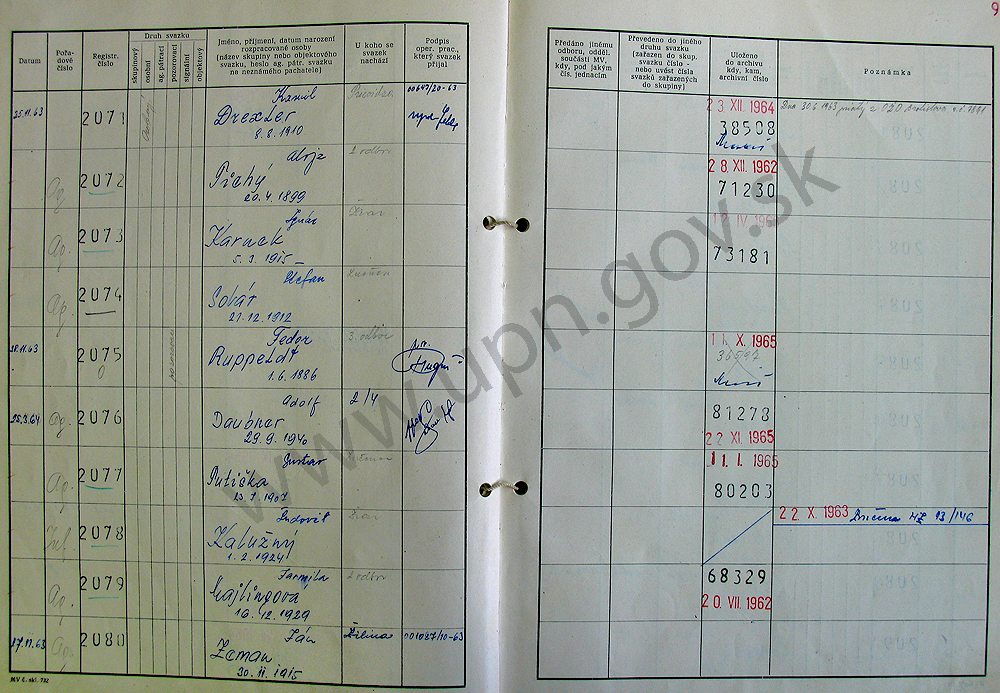 9
Datum
Pořadové číslo
Registr. číslo
Druh svazku
skupinový
osobní
ag. pátrací
pozorovací
signální
objektový
Jméno, příjmení, datum narození
rozpracované osoby
(název skupiny nebo objektového
svazku, heslo ag. pátr. svazku
na neznámého pachatele)
U koho se
svazek
nachází
Podpis
oper. prac.,
který svazek
přijal
Předáno jinému
odboru, odděl.
součásti MV,
kdy, pod jakým
čís. jednacím
Převedeno do jiného
druhu svazku
(zařazen do skup.
svazku číslo -
nebo uvést čísla
svazků zařazených
do skupiny)
Uloženo
do archivu
kdy, kam,
archivní číslo
Poznámka
25.11.63
2071
Kamil
Drexler
8.8.1910
00647/20-63
23 XII. 1964
38508
Ag.
2072
Alojz
Píchý
20.4.1899
2. odbor
28. XII. 1962
71230
Ag.
2073
Ignác
Karnek
5.3.1915
Žiar
73181
Ag.
2074
Štefan
Sobát
21.12.1912
28.11.63
2075
Fedor
Ruppeldt
1.6.1886
3. odbor
11. X. 1965
25.3.64
Ag.
2076
Adolf
Daubner
29.9.1940
2/4
81278
22 XI. 1965
Ag.
2077
Gustav
Putiška
23.7.1907
11. I. 1965
80203
Inf.
2078
Ľudovít
Kalužný
1.2.1924
Žiar
22. X. 1963
Ag.
2079
Jarmila
Majlingová
16.12.1929
2. odbor
68329
20. VII. 1962
17.11.63
Ag.
2080
Ján
Zeman
30.11.1915
Žilina
001027/10-63
MV č. skl. 792
www.upn.gov.sk